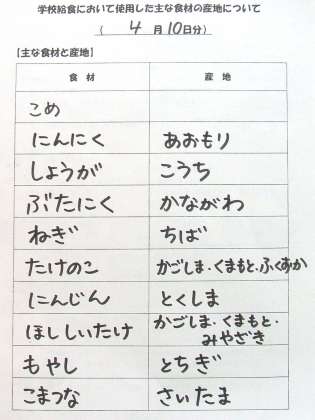 学校給食において使用した主な食材の産地について
( 4 月 10日分)
【主な食材と産地】
食 材 産 地
こめ
にんにく あおもり
しょうが こうち
ぶたにく かながわ
ねぎ ちば
たけのこ かごしま・くまもと・ふくおか
にんじん とくしま
ほししいたけ かごしま・くまもと・
みやざき
もやし とちぎ
こまつな さいたま